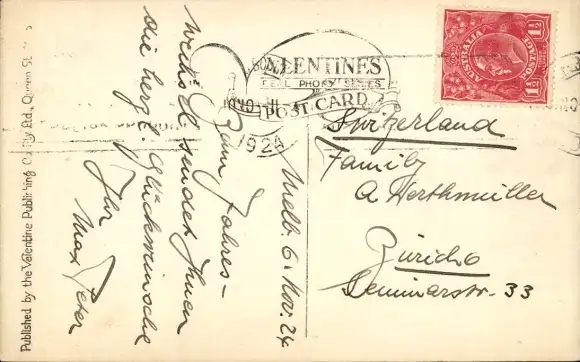 Melb. 6. Nov. 24
Zum Jahres-
wechsel sendet Ihnen
die herzl. Glückwünsche
Ihr
Max Peter
VALENTINES
REAL PHOTO SERIES
POST CARD
1924
AUSTRALIA
1½
1½
Switzerland
Family
A Werthmüller
Zürich 6
Seminarstr. 33
Published by the Valentine Publishing Co. Pty. Ltd., Queen St.